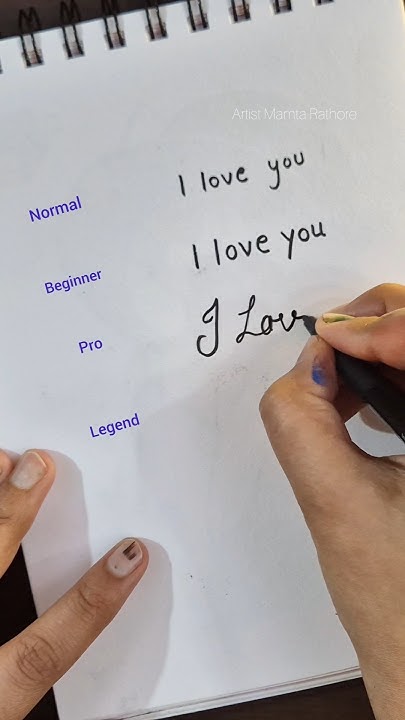 Artist Mamta Rathore
Normal I love you
Beginner I love you
Pro I Lov
Legend